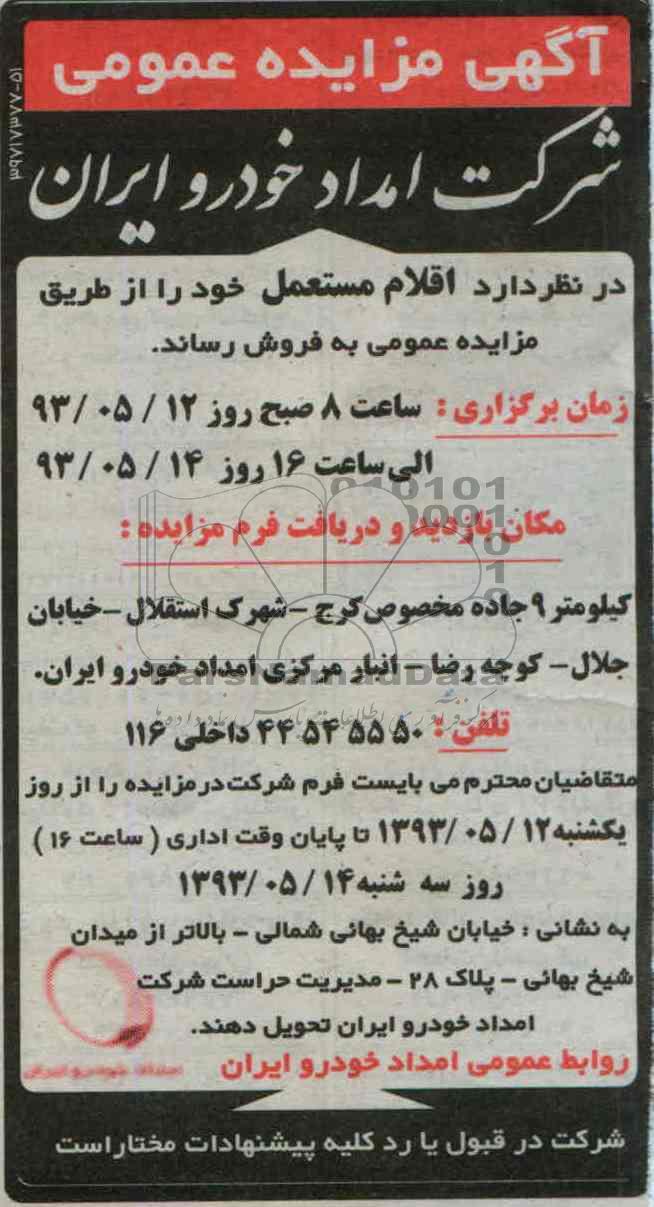 آگهی مزایده عمومی
شرکت امداد خودرو ایران
در نظر دارد اقلام مستعمل خود را از طریق
مزایده عمومی به فروش رساند.
زمان برگزاری : ساعت ۸ صبح روز ۱۲ / ۰۵ / ۹۳
الی ساعت ۱۶ روز ۱۴ / ۰۵ / ۹۳
مکان بازدید و دریافت فرم مزایده :
کیلومتر ۹ جاده مخصوص کرج - شهرک استقلال - خیابان
جلال - کوچه رضا - انبار مرکزی امداد خودرو ایران.
ParsNamadData
تلفن : ۴۴۵۴۵۵۵۰ داخلی ۱۱۶
متقاضیان محترم می بایست فرم شرکت در مزایده را از روز
یکشنبه ۱۲ / ۰۵ / ۱۳۹۳ تا پایان وقت اداری ( ساعت ۱۶ )
روز سه شنبه ۱۴ / ۰۵ / ۱۳۹۳
به نشانی : خیابان شیخ بهائی شمالی - بالاتر از میدان
شیخ بهائی - پلاک ۲۸ - مدیریت حراست شرکت
امداد خودرو ایران تحویل دهند.
امداد خودرو ایران
روابط عمومی امداد خودرو ایران
شرکت در قبول یا رد کلیه پیشنهادات مختار است